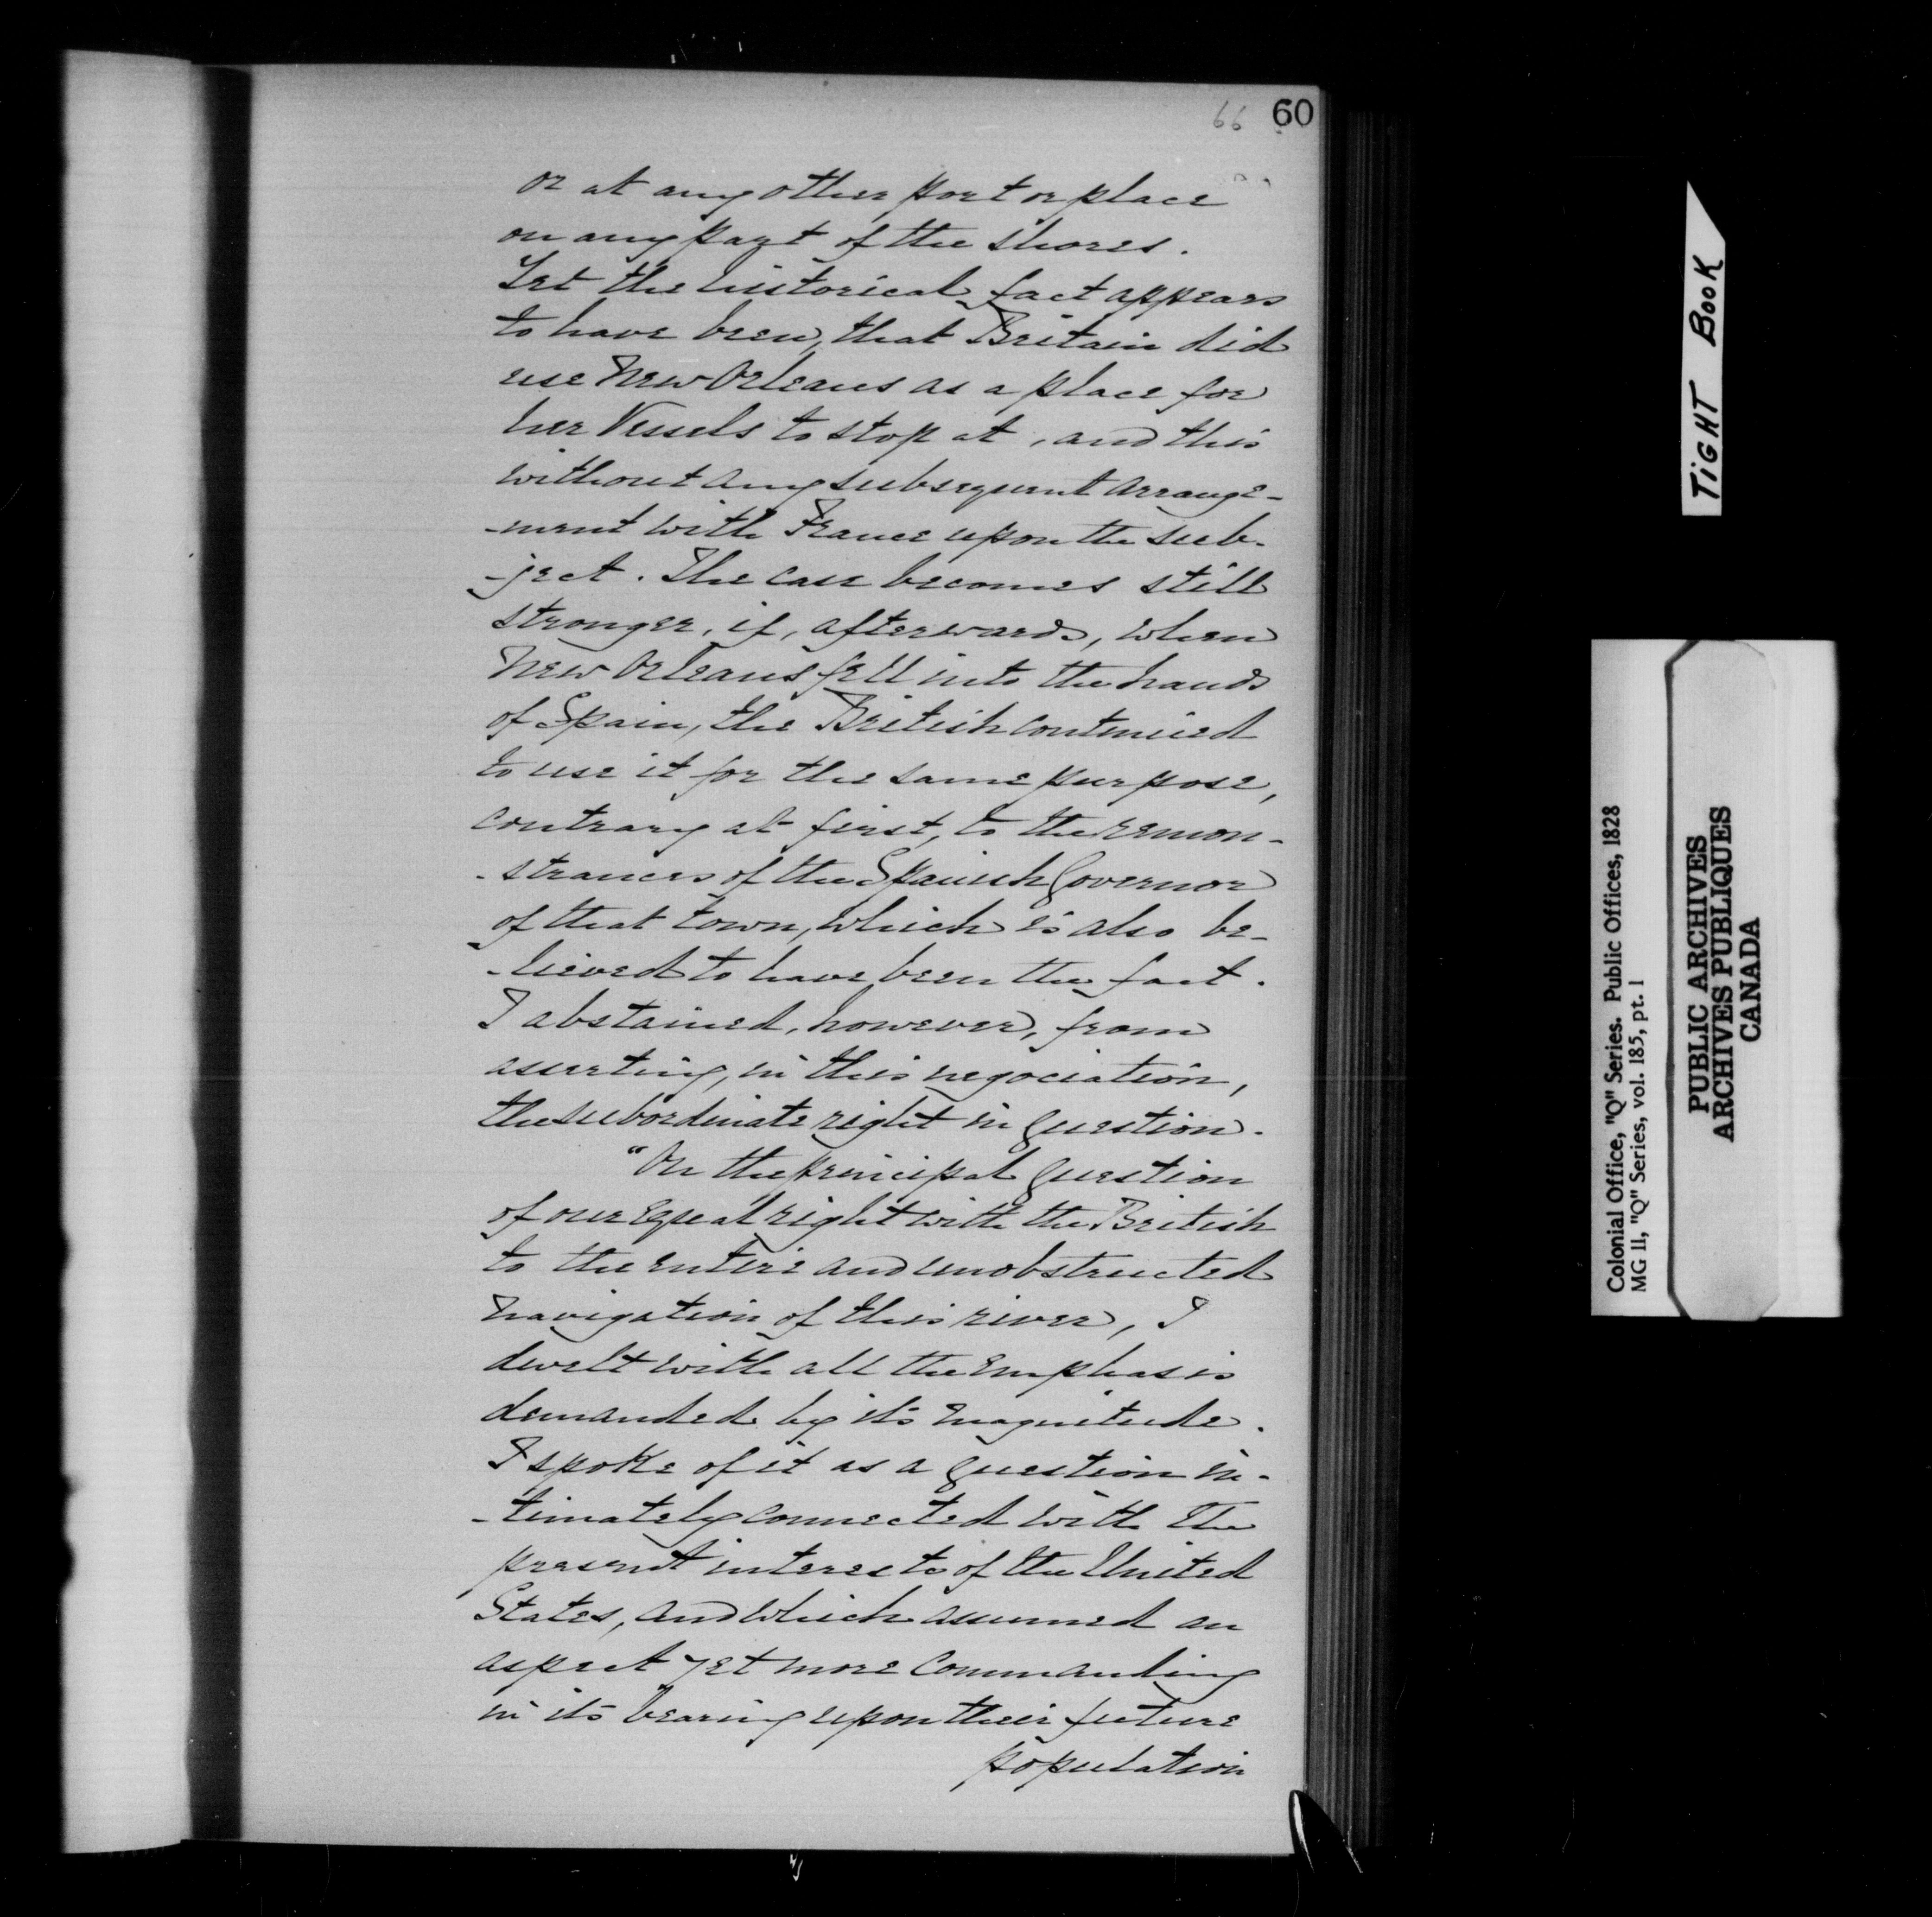 66 60
or at any other port or place
on any part of the shores.
Yet the historical fact appears
to have been, that Britain did
use New Orleans as a place for
her Vessels to stop at, and this
without any subsequent arrange-
-ment with France upon the sub-
-ject. The case becomes still
stronger, if, afterwards, when
New Orleans fell into the hands
of Spain, the British continued
to use it for the same purpose,
contrary at first, to the remon-
-strances of the Spanish Governor
of that town, which is also be-
-lieved to have been the fact.
I abstained, however, from
asserting, in this negociation,
the subordinate right in question.
"On the principal question
of our equal right with the British
to the entire and unobstructed
navigation of this river, I
dwelt with all the emphasis
demanded by its magnitude.
I spoke of it as a question in-
-timately connected with the
present interests of the United
States, and which assumed an
aspect yet more commanding
in its bearing upon their future
population
TIGHT BOOK
Colonial Office, "Q" Series. Public Offices, 1828
MG 11, "Q" Series, vol. 185, pt. 1
PUBLIC ARCHIVES
ARCHIVES PUBLIQUES
CANADA